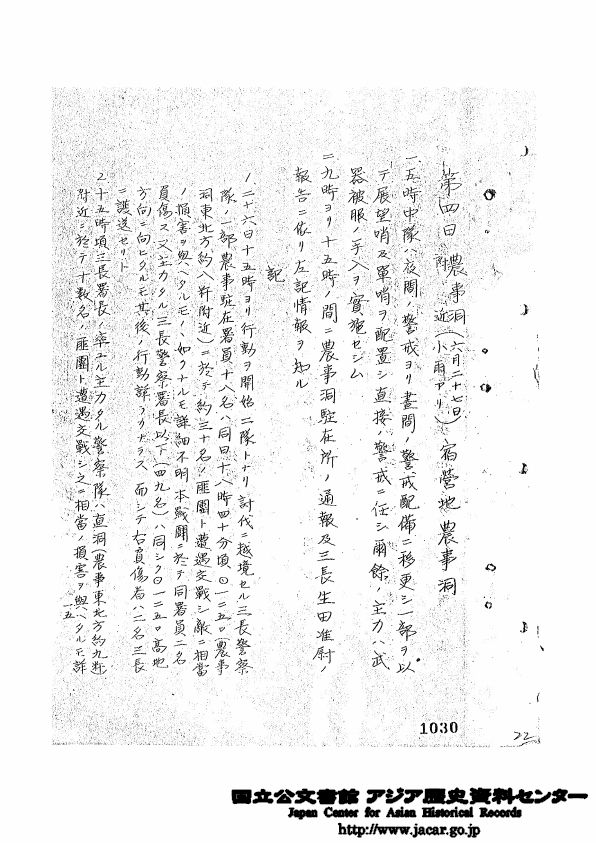 第四日 農事洞附近 (六月二十七日)(小雨アリ) 宿營地農事洞
一、五時中隊ハ夜間ノ警戒ヨリ晝間ノ警戒配備ニ移更シ一部ヲ以
テ展望哨及單哨ヲ配置シ直接ノ警戒ニ任シ爾餘ノ主力ハ武
器被服ノ手入ヲ實施セシム
二、九時ヨリ十五時ノ間ニ農事洞駐在所ノ通報及三長生田准尉ノ
報告ニ依リ左記情報ヲ知ル
記
1、二十六日十五時ヨリ行動ヲ開始二隊トナリ討伐ニ越境セル三長警察
隊ノ一部農事駐在署員十八名ハ同日十八時四十分頃〇一二五〇(農事
洞東北方約八粁附近)ニ於テ約三十名ノ匪團ト遭遇交戰シ敵ニ相當
ノ損害ヲ與ヘタルモノヽ如クナルモ詳細不明本戰鬪ニ於テ同署員二名
負傷ス又主力タル三長警察署長以下(四九名)ハ同シク〇一二五〇高地
方向ニ向ヒタルモ其後ノ行動詳ナラス而シテ右負傷者ハ二名三長
ニ護送セリト
2、十五時頃三長署長ノ率ユル主力タル警察隊ハ直洞(農事東北方約九粁
附近ニ於テ十數名ノ匪團ト遭遇交戰シ之ニ相當ノ損害ヲ與ヘタルモ詳
一五
1030
22
国立公文書館 アジア歴史資料センター
Japan Center for Asian Historical Records
http://www.jacar.go.jp